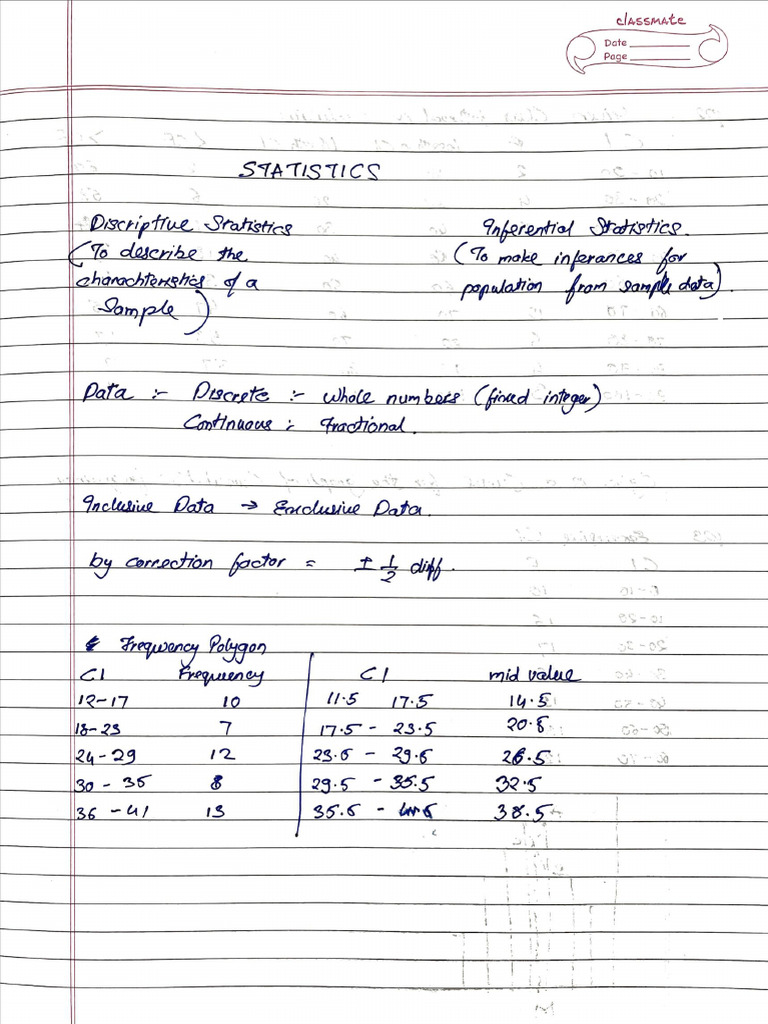 classmate
Date
Page
STATISTICS
Discriptive Statistics Inferential Statistics.
(To describe the (To make inferances for
charachteristics of a population from sample data).
Sample)
Data :- Discrete :- whole numbers (fixed integer)
Continuous :- Fractional.
Inclusive Data → Exclusive Data.
by correction factor = ± 1/2 diff.
Frequency Polygon
CI Frequency CI mid value
12-17 10 11.5 17.5 14.5
18-23 7 17.5 - 23.5 20.5
24-29 12 23.5 - 29.5 26.5
30 - 35 8 29.5 - 35.5 32.5
36 - 41 13 35.5 - 38.5